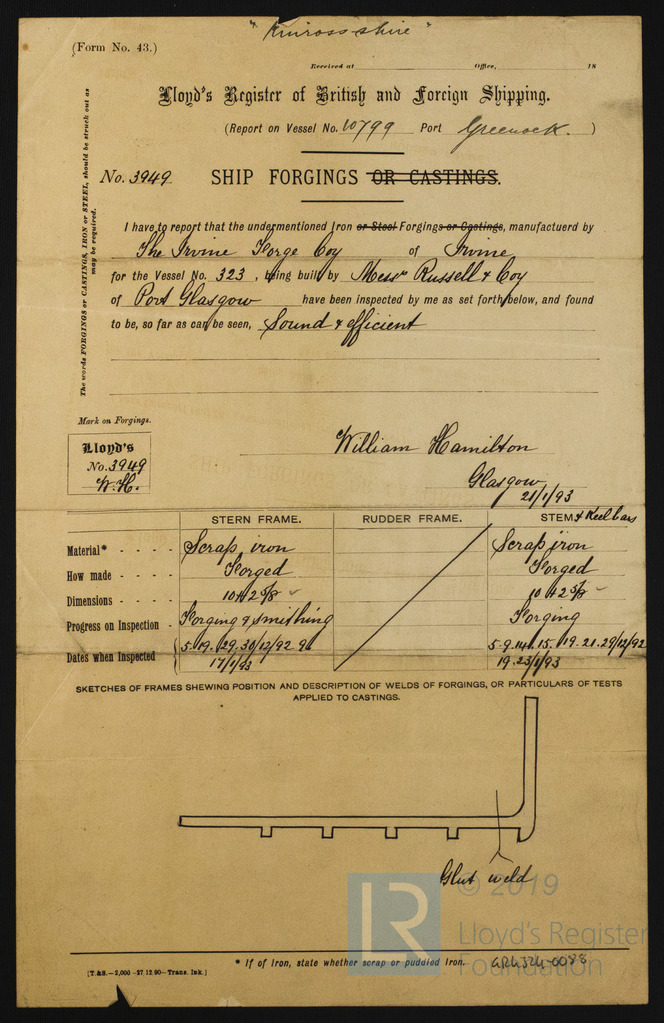 "Kinross-shire"
(Form No. 43.)
Received at Office, 18
Lloyd's Register of British and Foreign Shipping.
(Report on Vessel No. 10799 Port Greenock. )
No. 3949 SHIP FORGINGS OR CASTINGS.
The words FORGINGS or CASTINGS, IRON or STEEL, should be struck out as
may be required.
I have to report that the undermentioned Iron or Steel Forgings or Castings, manufactuerd by
The Irvine Forge Coy of Irvine
for the Vessel No. 323, being built by Messrs Russell & Coy
of Port Glasgow have been inspected by me as set forth below, and found
to be, so far as can be seen, Sound & efficient
Mark on Forgings.
Lloyd's
No. 3949
W.H.
William Hamilton
Glasgow
21/1/93
STERN FRAME. RUDDER FRAME. STEM & Keel bars
Material* - - - - Scrap iron Scrap iron
How made - - - - Forged Forged
Dimensions - - - - 10 x 2 5/8 10 x 2 5/8
Progress on Inspection - Forging & smithing Forging
Dates when Inspected 5.19.29.30/12/92 5.9.14.15.19.21.29/12/92
17/1/93 19.23/1/93
SKETCHES OF FRAMES SHEWING POSITION AND DESCRIPTION OF WELDS OF FORGINGS, OR PARTICULARS OF TESTS
APPLIED TO CASTINGS.
Glut weld
© 2019
LR
Lloyd's Register
Foundation
* If of Iron, state whether scrap or puddled Iron.
[T.&S.—2,000—27.12.90—Trans. Ink.]